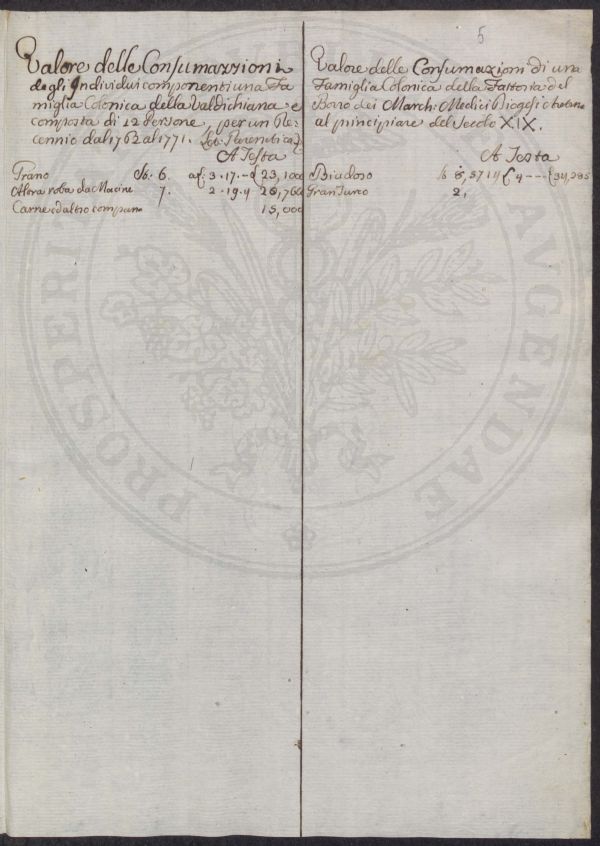 5
Valore delle Consumazzioni
degli Individui componenti una Fa
miglia Colonica della Valdichiana e
composta di 12 Persone, per un De=
cennio dal 1762 al 1771.
A Testa
Grano Sb. 6. a £ 3.17.- £ 23,100
Altra roba da Macine 7. 2.19.4 20,766
Carne ed altro companⁿ 15,000
Valore delle Consumazioni di una
Famiglia Colonica della Fattoria del
Boro dei March: Medici
al principiare del Secolo XIX.
A Testa
Granturco 2,
PROSPERITATI AVGENDAE